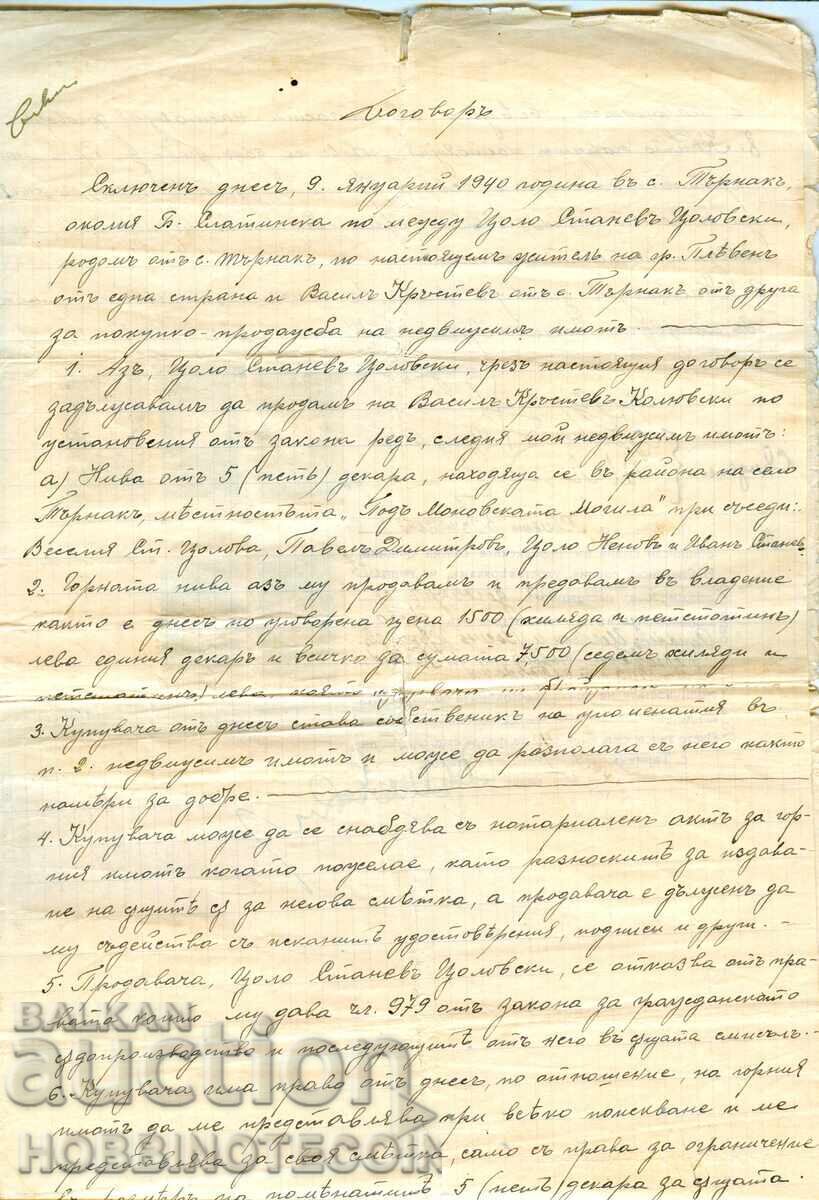 Договоръ
Сключенъ днесъ, 9. Януарий 1940 година въ с. Търнакъ,
околия Б. Слатинска по между Цоло Станевъ Цоловски,
родомъ отъ с. Търнакъ, по настоящемъ жителъ на гр. Плѣвенъ
отъ една страна и Василъ Кръстевъ отъ с. Търнакъ отъ друга
за покупко-продажба на недвижимъ имотъ.
1. Азъ, Цоло Станевъ Цоловски, чрезъ настоящия договоръ се
задължавамъ да продамъ на Василъ Кръстевъ Колювски по
установения отъ закона редъ, следния мой недвижимъ имотъ:
а) Нива отъ 5 (петь) декара, находяща се въ района на село
Търнакъ, мѣстностьта „Подъ Моновската Могила" при съседи:
Веселия Ст. Цолова, Павелъ Димитровъ, Цоло Неновъ и Иванъ Станевъ
2. Горната нива азъ му продавамъ и предавамъ въ владение
както е днесъ по уговорена цена 1500 (хиляда и петстотинъ)
лева единия декаръ и всичко за сумата 7,500 (седемъ хиляди и
петстотинъ) лева, която
3. Купувача отъ днесъ става собственикъ на упоменатия въ
п. 2. недвижимъ имотъ и може да разполага съ него както
намѣри за добре.
4. Купувача може да се снабдява съ нотариаленъ актъ за гор-
ния имотъ когато пожелае, като разноскитѣ за издава-
не на ѫщитѣ ѫ за негова смѣтка, а продавача е длъженъ да
му съдейства съ исканитѣ удостовѣрения, подписи и други.-
5. Продавача, Цоло Станевъ Цоловски, се отказва отъ пра-
вата които му дава чл. 979 отъ закона за гражданското
ѫдопроизводство и последующитѣ отъ него въ ѫщата смисълъ.-
6. Купувача има право отъ днесъ, по отношение, на горния
имотъ да ме представлява при всѣко поискване и ме
представлява за своя смѣтка, само съ права за ограничение
въ размѣръ на помѣнатитѣ 5 (петь) декара за ѫщата.
BALKAN
auction
HOBBINOTECOIN